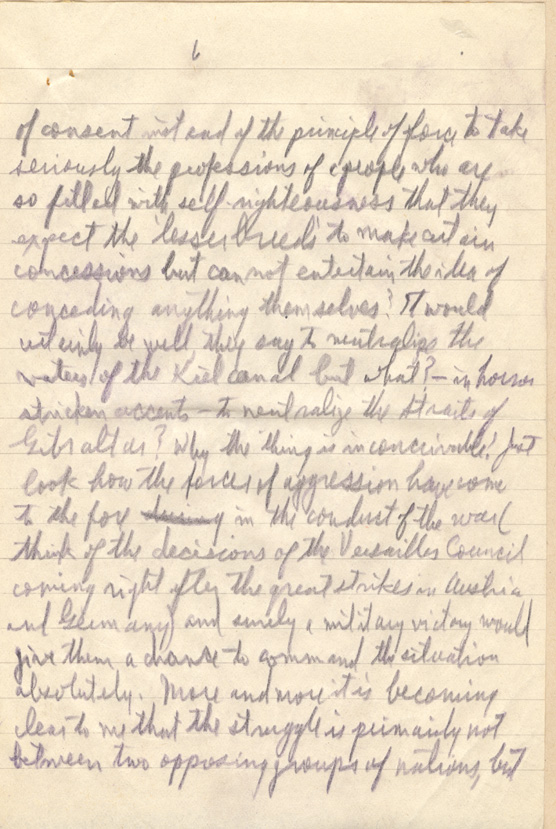 6
of consent not end of the principle of force to take
seriously the professions of people who are
so filled with self-righteousness that they
expect the lesser breeds to make certain
concessions but cannot entertain the idea of
conceding anything themselves? It would
certainly be well they say to neutralize the
waters of the Kiel canal but what? — in horror
stricken accents — to neutralize the straits of
Gibraltar? Why the thing is inconceivable! Just
look how the forces of aggression have come
to the fore in the conduct of the war (
think of the decisions of the Versailles Council
coming right after the great strikes in Austria
and Germany) and surely a military victory would
give them a chance to command the situation
absolutely. More and more it is becoming
clear to me that the struggle is primarily not
between two opposing groups of nations, but